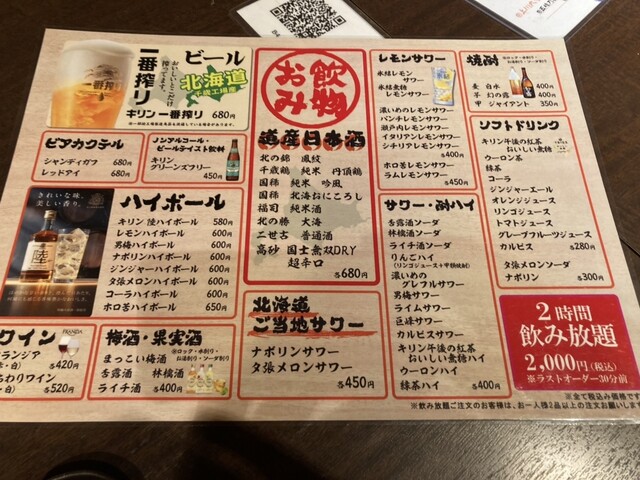 ビール
一番搾り
おいしいとこだけ搾ってます。
北海道
千歳工場産
キリン 一番搾り 680円
ビアカクテル
シャンディガフ 680円
レッドアイ 680円
ノンアルコール・
ビールテイスト飲料
キリン
グリーンズフリー
450円
きれいな味、
美しい香り。
陸
ハイボール
キリン 陸ハイボール 580円
レモンハイボール 600円
男梅ハイボール 600円
ナポリンハイボール 600円
ジンジャーハイボール 600円
夕張メロンハイボール 600円
コーラハイボール 600円
ホロ苦ハイボール 650円
ワイン
ランジア
・白) 各420円
わりワイン
・白) 各520円
梅酒・果実酒
※ロック・水割り・
お湯割り・ソーダ割り
まっこい梅酒
杏露酒 林檎酒
ライチ酒 各400円
お飲み物
道産日本酒
北の錦 鳳紋
千歳鶴 純米 丹頂鶴
国稀 純米 吟風
国稀 北海おにころし
福司 純米酒
北の勝 大海
二世古 普通酒
高砂 国士無双DRY
超辛口
各680円
北海道
ご当地サワー
ナポリンサワー
夕張メロンサワー
各450円
レモンサワー
氷結レモン
サワー
氷結無糖
レモンサワー
濃いめのレモンサワー
パンチレモンサワー
瀬戸内レモンサワー
イタリアンレモンサワー
シチリアレモンサワー
各400円
ホロ苦レモンサワー
ラムレモンサワー
各450円
サワー・酎ハイ
杏露酒ソーダ
林檎酒ソーダ
ライチ酒ソーダ
りんごハイ
(リンゴジュース+甲類焼酎)
濃いめの
グレフルサワー
男梅サワー
ライムサワー
巨峰サワー
カルピスサワー
キリン午後の紅茶
おいしい無糖ハイ
ウーロンハイ
緑茶ハイ 各400円
焼酎
※ロック・水割り・
お湯割り・ソーダ割り
麦 白水 400円
芋 幻の露 400円
甲 ジャイアント 350円
ソフトドリンク
キリン午後の紅茶
おいしい無糖
ウーロン茶
緑茶
コーラ
ジンジャーエール
オレンジジュース
リンゴジュース
トマトジュース
グレープフルーツジュース
カルピス 各280円
夕張メロンソーダ
ナポリン 各300円
2時間
飲み放題
2,000円(税込)
※ラストオーダー30分前
※全て税込み価格です
※飲み放題ご注文のお客様は、お一人様2品以上の注文お願いします